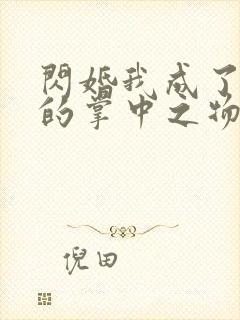 閃婚我成了
的掌中之物
倪田